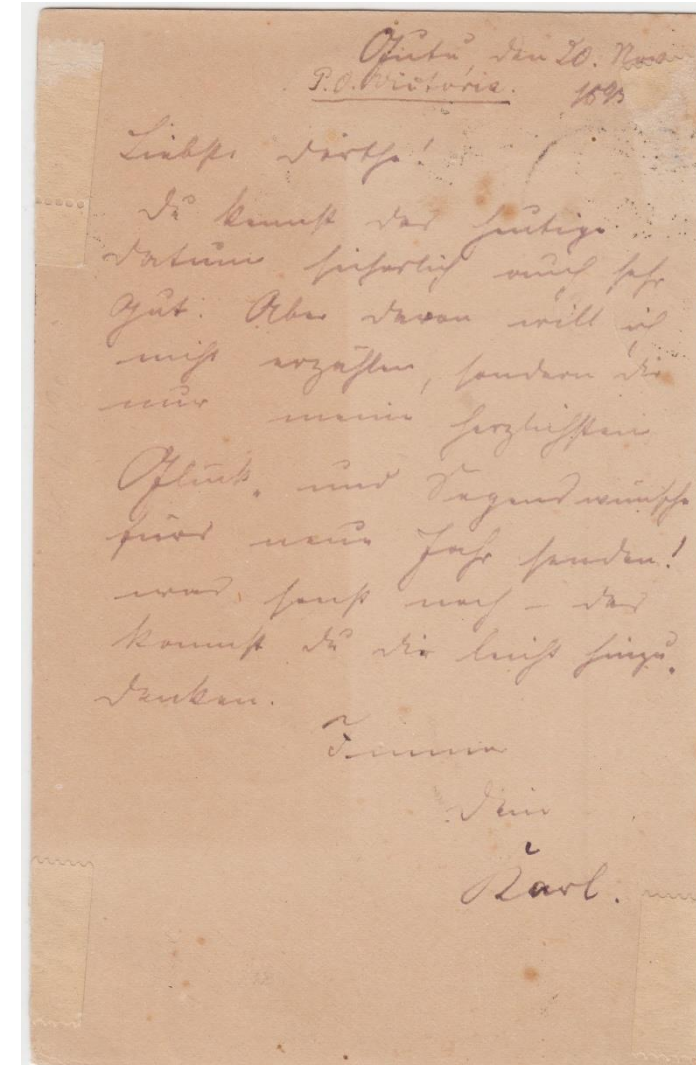 Gutu, den 20. Nov
P. O. Victoria. 1893
Liebste Dörthe!
Du kennst das heutige
Datum sicherlich auch sehr
gut. Aber davon will ich
nicht erzählen, sondern Dir
nur meine herzlichsten
Glück- und Segenswünsche
fürs neue Jahr senden!
was sonst noch – das
kannst Du Dir leicht hinzu-
denken.
Immer
Dein
Karl.